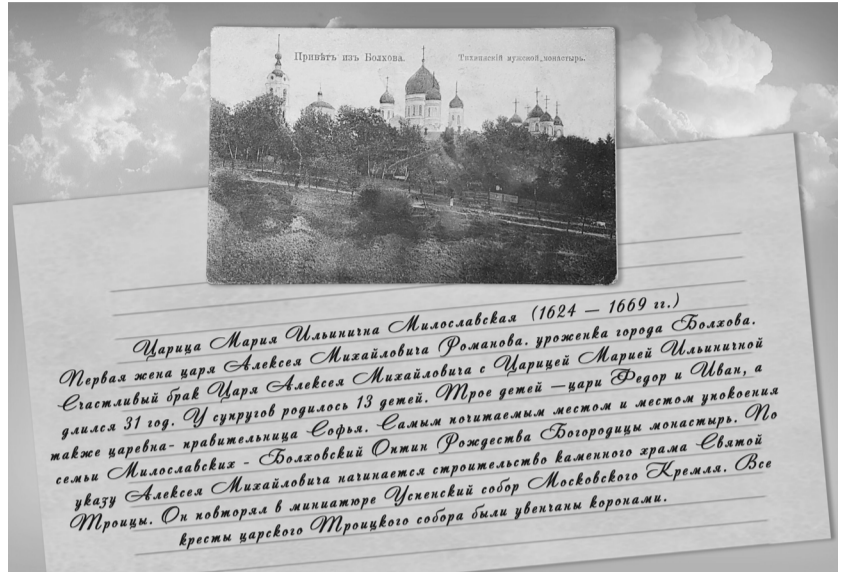 Привѣтъ изъ Болхова. Тихвинскій мужской монастырь.
Царица Мария Ильинична Милославская (1624 — 1669 гг.)
Первая жена царя Алексея Михайловича Романова. уроженка города Болхова.
Счастливый брак Царя Алексея Михайловича с Царицей Марией Ильиничной
длился 31 год. У супругов родилось 13 детей. Трое детей —цари Федор и Иван, а
также царевна- правительница Софья. Самым почитаемым местом и местом упокоения
семьи Милославских - Болховский Оптин Рождества Богородицы монастырь. По
указу Алексея Михайловича начинается строительство каменного храма Святой
Троицы. Он повторял в миниатюре Успенский собор Московского Кремля. Все
кресты царского Троицкого собора были увенчаны коронами.